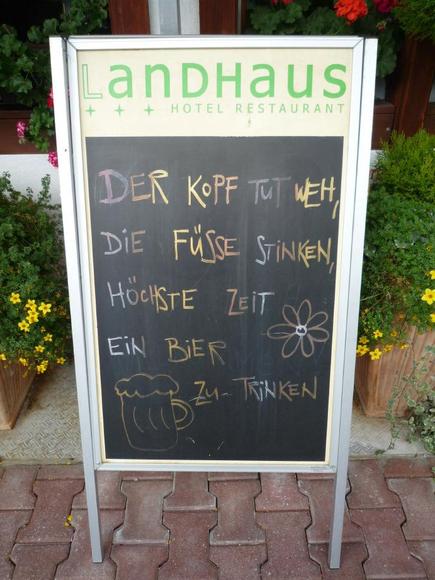 LanDHaus
HOTEL RESTAURANT
DER KOPF TUT WEH,
DIE FÜSSE STINKEN,
HÖCHSTE ZEIT
EIN BIER
ZU-TRINKEN